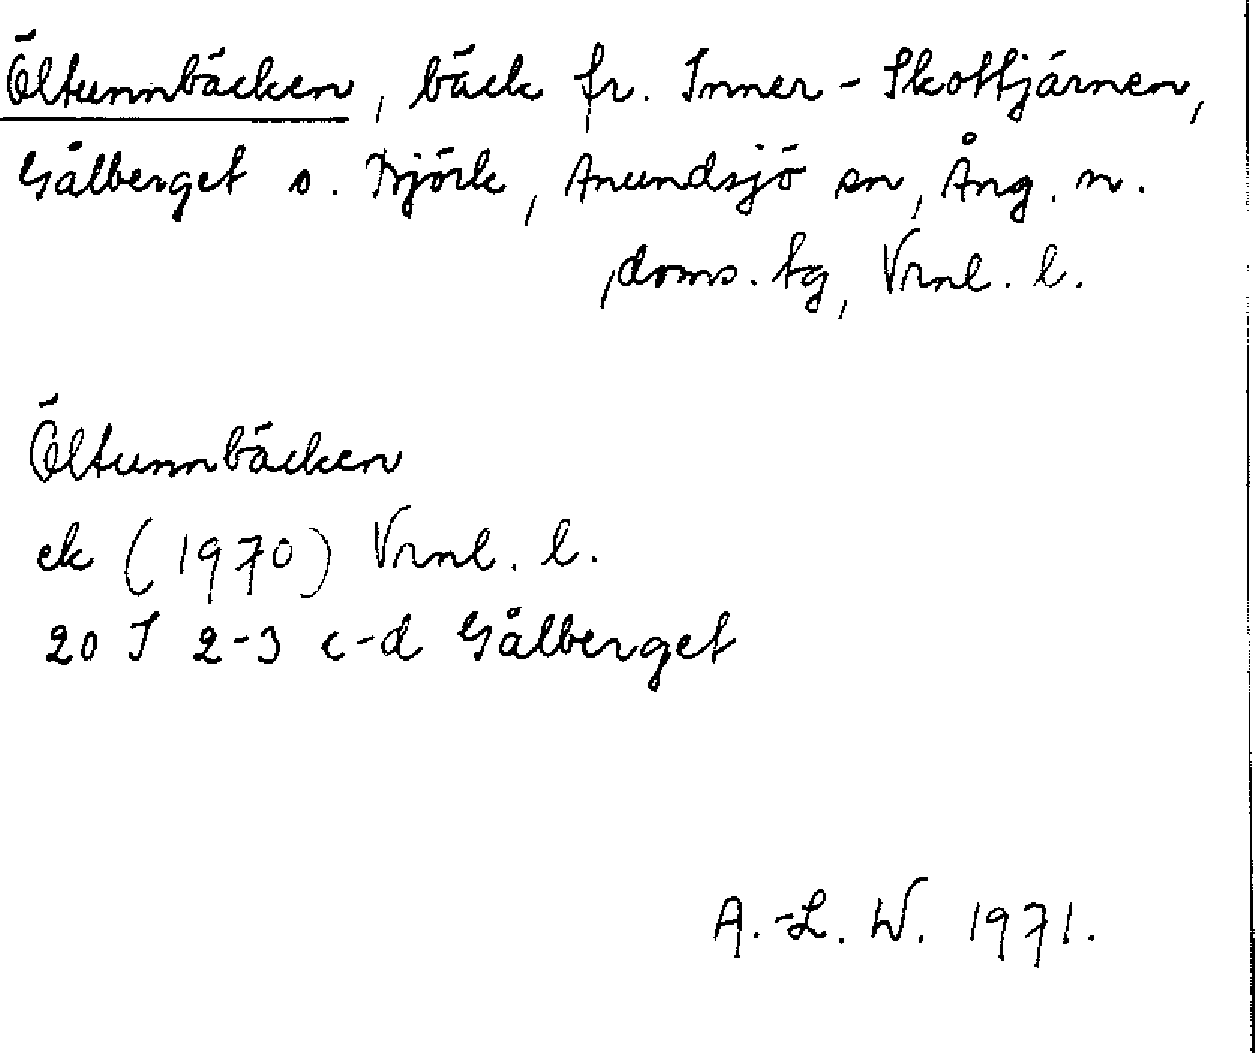 Öltunnbäcken, bäck fr. Inner-Skottjärnen,
Gålberget s. Björk, Anundsjö sn, Ång. n.
doms. tg, Vrnl. l.
Öltunnbäcken
ek (1970) Vrnl. l.
20 I 2-3 c-d Gålberget
A.-L. W. 1971.